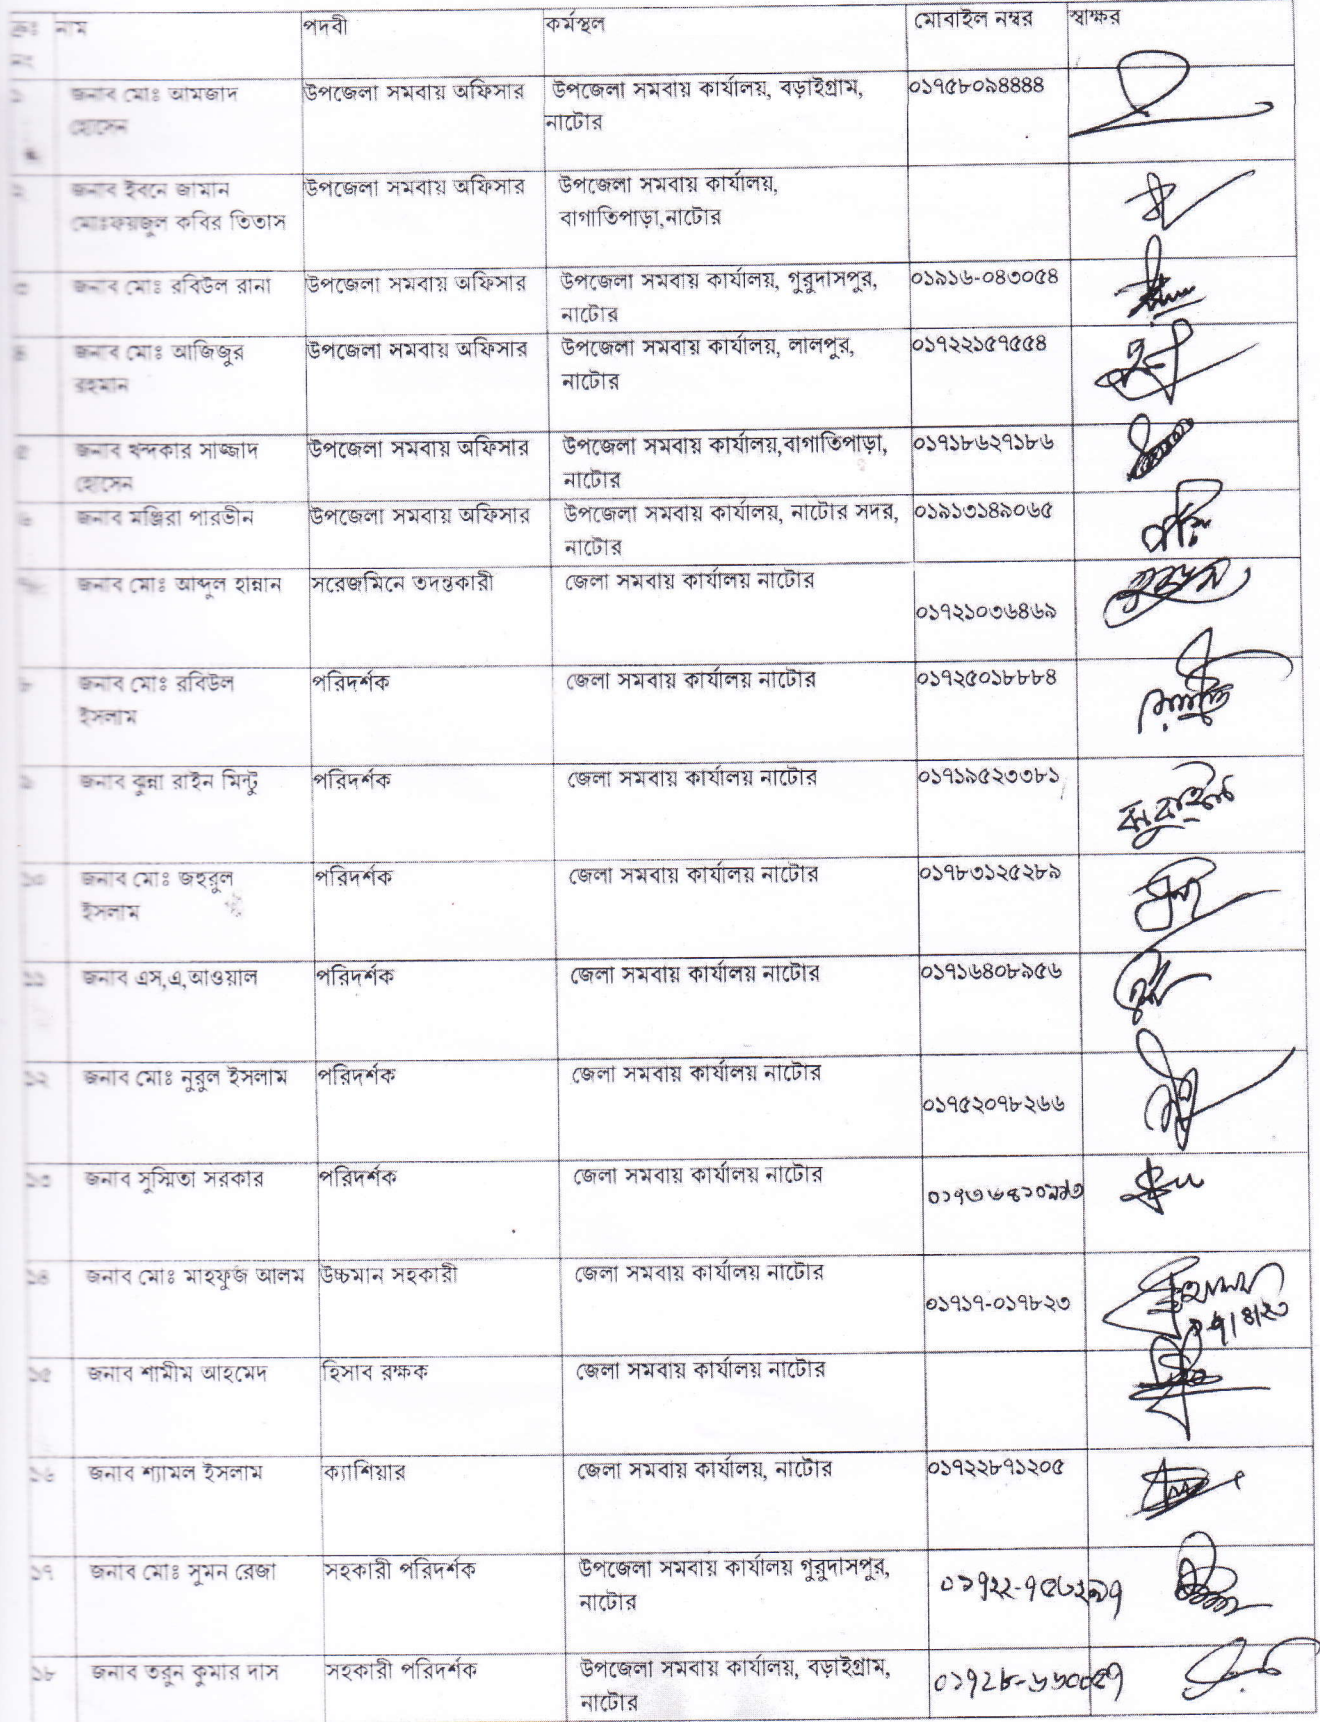 ক্রঃ নাম পদবী কর্মস্থল মোবাইল নম্বর স্বাক্ষর
নং
১ জনাব মোঃ আমজাদ উপজেলা সমবায় অফিসার উপজেলা সমবায় কার্যালয়, বড়াইগ্রাম, ০১৭৫৮০৯৪৪৪৪
হোসেন নাটোর
২ জনাব ইবনে জামান উপজেলা সমবায় অফিসার উপজেলা সমবায় কার্যালয়,
মোঃফয়জুল কবির তিতাস বাগাতিপাড়া,নাটোর
৩ জনাব মোঃ রবিউল রানা উপজেলা সমবায় অফিসার উপজেলা সমবায় কার্যালয়, গুরুদাসপুর, ০১৯১৬-০৪৩০৫৪
নাটোর
৪ জনাব মোঃ আজিজুর উপজেলা সমবায় অফিসার উপজেলা সমবায় কার্যালয়, লালপুর, ০১৭২২১৫৭৫৫৪
রহমান নাটোর
৫ জনাব খন্দকার সাজ্জাদ উপজেলা সমবায় অফিসার উপজেলা সমবায় কার্যালয়,বাগাতিপাড়া, ০১৭১৮৬২৭১৮৬
হোসেন নাটোর
৬ জনাব মঞ্জিরা পারভীন উপজেলা সমবায় অফিসার উপজেলা সমবায় কার্যালয়, নাটোর সদর, ০১৯১৩১৪৯০৬৫
নাটোর
জনাব মোঃ আব্দুল হান্নান সরেজমিনে তদন্তকারী জেলা সমবায় কার্যালয় নাটোর
০১৭২১০৩৬৪৬৯
৮ জনাব মোঃ রবিউল পরিদর্শক জেলা সমবায় কার্যালয় নাটোর ০১৭২৫০১৮৮৮৪
ইসলাম
৯ জনাব ঝুন্না রাইন মিন্টু পরিদর্শক জেলা সমবায় কার্যালয় নাটোর ০১৭১৯৫২৩৩৮১
১০ জনাব মোঃ জহুরুল পরিদর্শক জেলা সমবায় কার্যালয় নাটোর ০১৭৮৩১২৫২৮৯
ইসলাম
১১ জনাব এস,এ,আওয়াল পরিদর্শক জেলা সমবায় কার্যালয় নাটোর ০১৭১৬৪০৮৯৫৬
১২ জনাব মোঃ নুরুল ইসলাম পরিদর্শক জেলা সমবায় কার্যালয় নাটোর
০১৭৫২০৭৮২৬৬
১৩ জনাব সুস্মিতা সরকার পরিদর্শক জেলা সমবায় কার্যালয় নাটোর
১৪ জনাব মোঃ মাহফুজ আলম উচ্চমান সহকারী জেলা সমবায় কার্যালয় নাটোর
০১৭১৭-০১৭৮২৩
১৫ জনাব শামীম আহমেদ হিসাব রক্ষক জেলা সমবায় কার্যালয় নাটোর
১৬ জনাব শ্যামল ইসলাম ক্যাশিয়ার জেলা সমবায় কার্যালয়, নাটোর ০১৭২২৮৭১২০৫
১৭ জনাব মোঃ সুমন রেজা সহকারী পরিদর্শক উপজেলা সমবায় কার্যালয় গুরুদাসপুর,
নাটোর
১৮ জনাব তরুন কুমার দাস সহকারী পরিদর্শক উপজেলা সমবায় কার্যালয়, বড়াইগ্রাম,
নাটোর